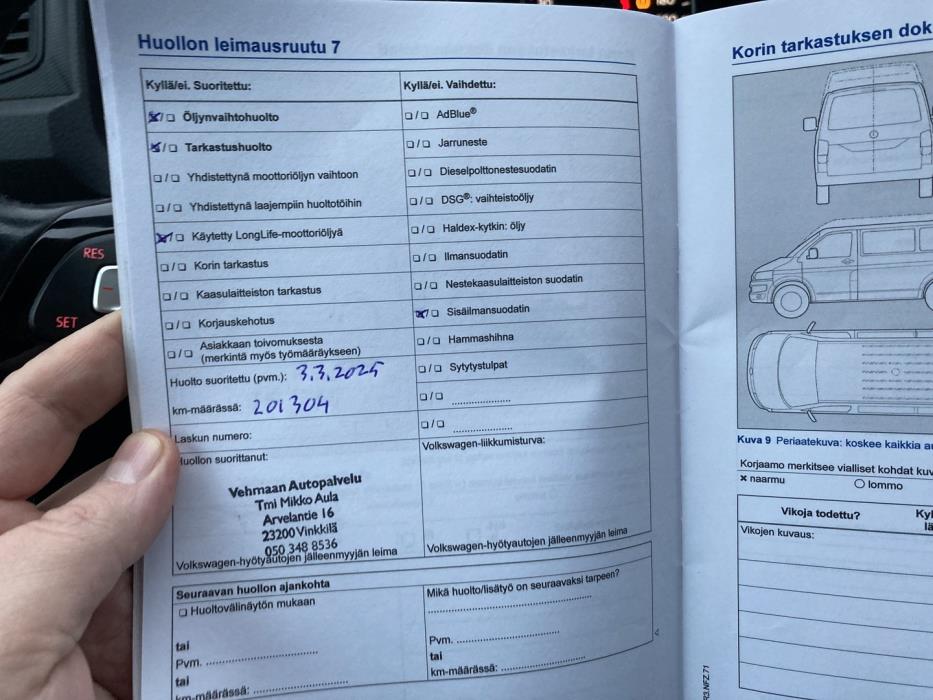 Huollon leimausruutu 7
Kyllä/ei. Suoritettu:
Öljynvaihtohuolto
Tarkastushuolto
Yhdistettynä moottoriöljyn vaihtoon
Yhdistettynä laajempiin huoltotöihin
Käytetty LongLife-moottoriöljyä
Korin tarkastus
Kaasulaitteiston tarkastus
Korjauskehotus
Asiakkaan toivomuksesta
(merkintä myös työmääräykseen)
Huolto suoritettu (pvm.): 3.3.2025
km-määrässä: 201304
Laskun numero:
Kyllä/ei. Vaihdettu:
AdBlue®
Jarruneste
Dieselpolttonestesuodatin
DSG®: vaihteistoöljy
Haldex-kytkin: öljy
Ilmansuodatin
Nestekaasulaitteiston suodatin
Sisäilmansuodatin
Hammashihna
Sytytystulpat
uollon suorittanut:
Vehmaan Autopalvelu
Tmi Mikko Aula
Arvelantie 16
23200 Vinkkilä
050 348 8536
Volkswagen-hyötyautojen jälleenmyyjän leima
Volkswagen-liikkumisturva:
Volkswagen-hyötyautojen jälleenmyyjän leima
Seuraavan huollon ajankohta
Huoltovälinäytön mukaan
tai
Pvm.
tai
km-määrässä:
Mikä huolto/lisätyö on seuraavaksi tarpeen?
Pvm.
tai
km-määrässä:
Korin tarkastuksen dok
Kuva 9 Periaatekuva: koskee kaikkia au
Korjaamo merkitsee vialliset kohdat kuv
× naarmu
○ lommo
Vikoja todettu?
Kyl
lä
Vikojen kuvaus:
R3.NFZ.71
RES
SET